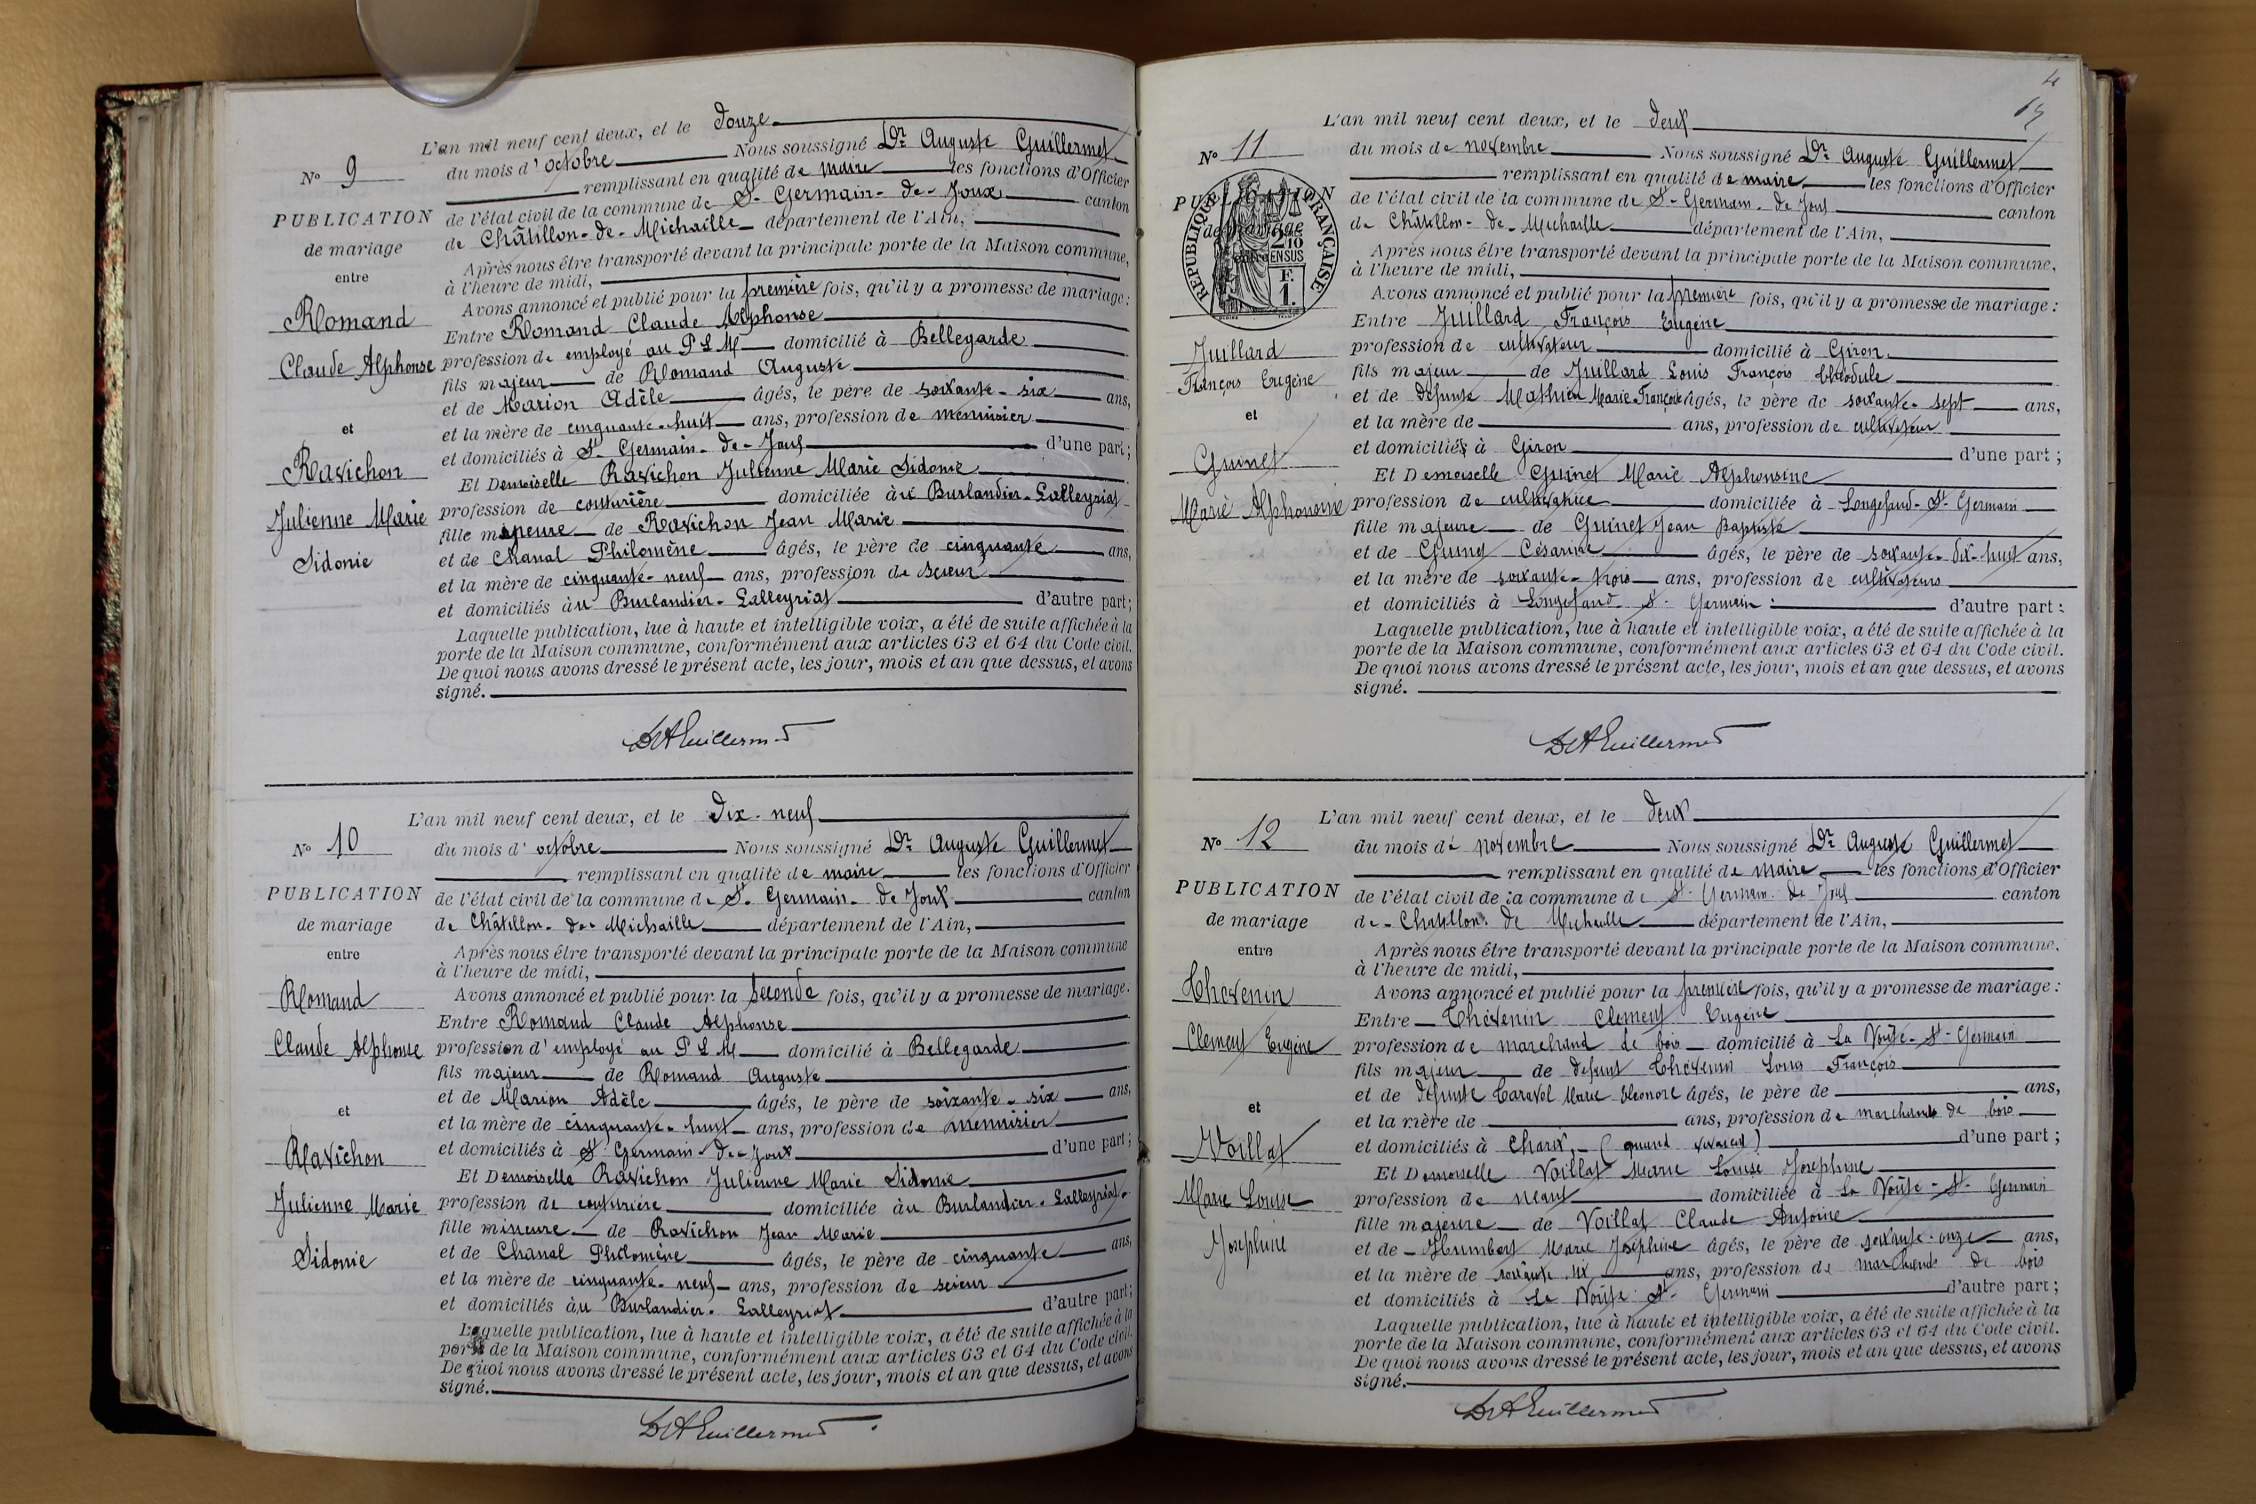 L'an mil neuf cent deux, et le douze
N° 9
du mois d'octobre Nous soussigné Dr Auguste Guillermet
remplissant en qualité de maire les fonctions d'Officier
PUBLICATION
de mariage
entre
de l'état civil de la commune de St Germain-de-Joux canton
de Châtillon-de-Michaille département de l'Ain,
Après nous être transporté devant la principale porte de la Maison commune,
à l'heure de midi,
Avons annoncé et publié pour la première fois, qu'il y a promesse de mariage:
Romand
Claude Alphonse
et
Ravichon
Julienne Marie
Sidonie
Entre Romand Claude Alphonse
profession de employé au P L M domicilié à Bellegarde
fils majeur de Romand Auguste
et de Marion Adèle âgés, le père de soixante-six ans,
et la mère de cinquante-huit ans, profession de menuisier
et domiciliés à St Germain-de-Joux d'une part;
Et Demoiselle Ravichon Julienne Marie Sidonie
profession de couturière domiciliée au Burlandier-Lalleyriat
fille mineure de Ravichon Jean Marie
et de Chanal Philomène âgés, le père de cinquante ans,
et la mère de cinquante-neuf ans, profession de scieur
et domiciliés au Burlandier-Lalleyriat d'autre part;
Laquelle publication, lue à haute et intelligible voix, a été de suite affichée à la
porte de la Maison commune, conformément aux articles 63 et 64 du Code civil.
De quoi nous avons dressé le présent acte, les jour, mois et an que dessus, et avons
signé.
Dr A Guillermet
L'an mil neuf cent deux, et le dix-neuf
N° 10
du mois d'octobre Nous soussigné Dr Auguste Guillermet
remplissant en qualité de maire les fonctions d'Officier
PUBLICATION
de mariage
entre
de l'état civil de la commune de St Germain-de Joux canton
de Châtillon-de-Michaille département de l'Ain,
Après nous être transporté devant la principale porte de la Maison commune
à l'heure de midi,
Avons annoncé et publié pour la seconde fois, qu'il y a promesse de mariage.
Romand
Claude Alphonse
et
Ravichon
Julienne Marie
Sidonie
Entre Romand Claude Alphonse
profession d'employé au P L M domicilié à Bellegarde
fils majeur de Romand Auguste
et de Marion Adèle âgés, le père de soixante-six ans,
et la mère de cinquante-huit ans, profession de menuisier
et domiciliés à St Germain-de-Joux d'une part;
Et Demoiselle Ravichon Julienne Marie Sidonie
profession de couturière domiciliée au Burlandier-Lalleyriat
fille mineure de Ravichon Jean Marie
et de Chanal Philomène âgés, le père de cinquante ans,
et la mère de cinquante-neuf ans, profession de scieur
et domiciliés au Burlandier-Lalleyriat d'autre part;
Laquelle publication, lue à haute et intelligible voix, a été de suite affichée à la
porte de la Maison commune, conformément aux articles 63 et 64 du Code civil.
De quoi nous avons dressé le présent acte, les jour, mois et an que dessus, et avons
signé.
Dr A Guillermet
4
L'an mil neuf cent deux, et le deux
N° 11
du mois de novembre Nous soussigné Dr Auguste Guillermet
remplissant en qualité de maire les fonctions d'Officier
PUBLICATION
de mariage
entre
RÉPUBLIQUE FRANÇAISE
2/10 EN SUS
F. 1.
de l'état civil de la commune de St Germain-de Joux canton
de Châtillon-de-Michaille département de l'Ain,
Après nous être transporté devant la principale porte de la Maison commune,
à l'heure de midi,
Avons annoncé et publié pour la première fois, qu'il y a promesse de mariage:
Juillard
François Eugène
et
Guinet
Marie Alphonsine
Entre Juillard François Eugène
profession de cultivateur domicilié à Giron
fils majeur de Juillard Louis François Théodule
et de défunte Mathieu Marie Françoise âgés, le père de soixante-sept ans,
et la mère de ans, profession de cultivateur
et domiciliés à Giron d'une part;
Et Demoiselle Guinet Marie Alphonsine
profession de cultivatrice domiciliée à Longefand-St Germain
fille majeure de Guinet Jean Baptiste
et de Guinet Césarine âgés, le père de soixante-dix-huit ans,
et la mère de soixante-trois ans, profession de cultivateurs
et domiciliés à Longefand-St Germain d'autre part:
Laquelle publication, lue à haute et intelligible voix, a été de suite affichée à la
porte de la Maison commune, conformément aux articles 63 et 64 du Code civil.
De quoi nous avons dressé le présent acte, les jour, mois et an que dessus, et avons
signé.
Dr A Guillermet
L'an mil neuf cent deux, et le deux
N° 12
du mois de novembre Nous soussigné Dr Auguste Guillermet
remplissant en qualité de maire les fonctions d'Officier
PUBLICATION
de mariage
entre
de l'état civil de la commune de St Germain-de Joux canton
de Chatillon de Michaille département de l'Ain,
Après nous être transporté devant la principale porte de la Maison commune,
à l'heure de midi,
Avons annoncé et publié pour la première fois, qu'il y a promesse de mariage:
Thévenin
Clément Eugène
et
Voillat
Marie Louise
Joséphine
Entre Thévenin Clément Eugène
profession de marchand de bois domicilié à La Voûte-St Germain
fils majeur de défunt Thévenin Louis François
et de défunte Taravel Marie Eléonore âgés, le père de ans,
et la mère de ans, profession de marchands de bois
et domiciliés à Charix (quand vivaient) d'une part;
Et Demoiselle Voillat Marie Louise Joséphine
profession de néant domiciliée à La Voûte-St Germain
fille majeure de Voillat Claude Antoine
et de Humbert Marie Joséphine âgés, le père de soixante-onze ans,
et la mère de soixante six ans, profession de marchands de bois
et domiciliés à La Voûte St Germain d'autre part;
Laquelle publication, lue à haute et intelligible voix, a été de suite affichée à la
porte de la Maison commune, conformément aux articles 63 et 64 du Code civil.
De quoi nous avons dressé le présent acte, les jour, mois et an que dessus, et avons
signé.
Dr A Guillermet